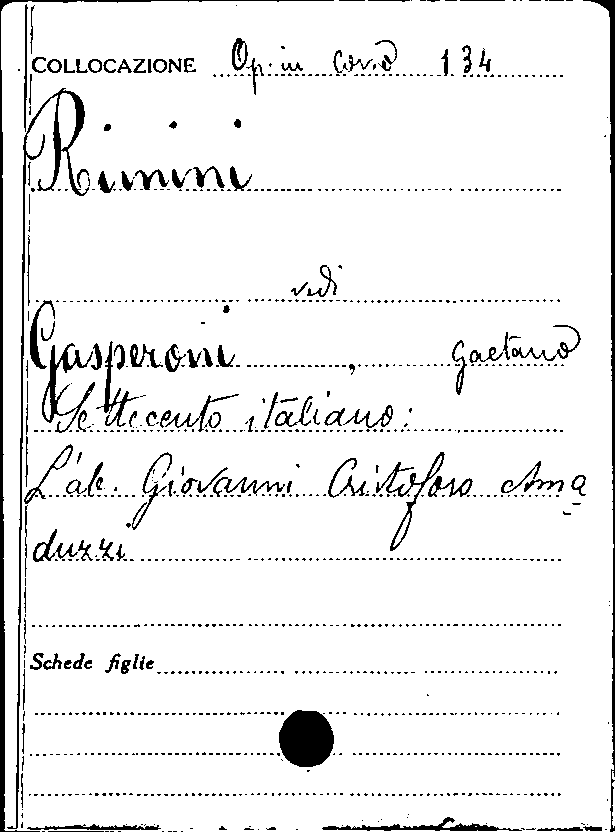 COLLOCAZIONE Op. in corso 134
Rimini
vedi
Gasperoni, Gaetano
Settecento italiano:
L'ab. Giovanni Cristoforo Ama
duzzi
Schede figlie